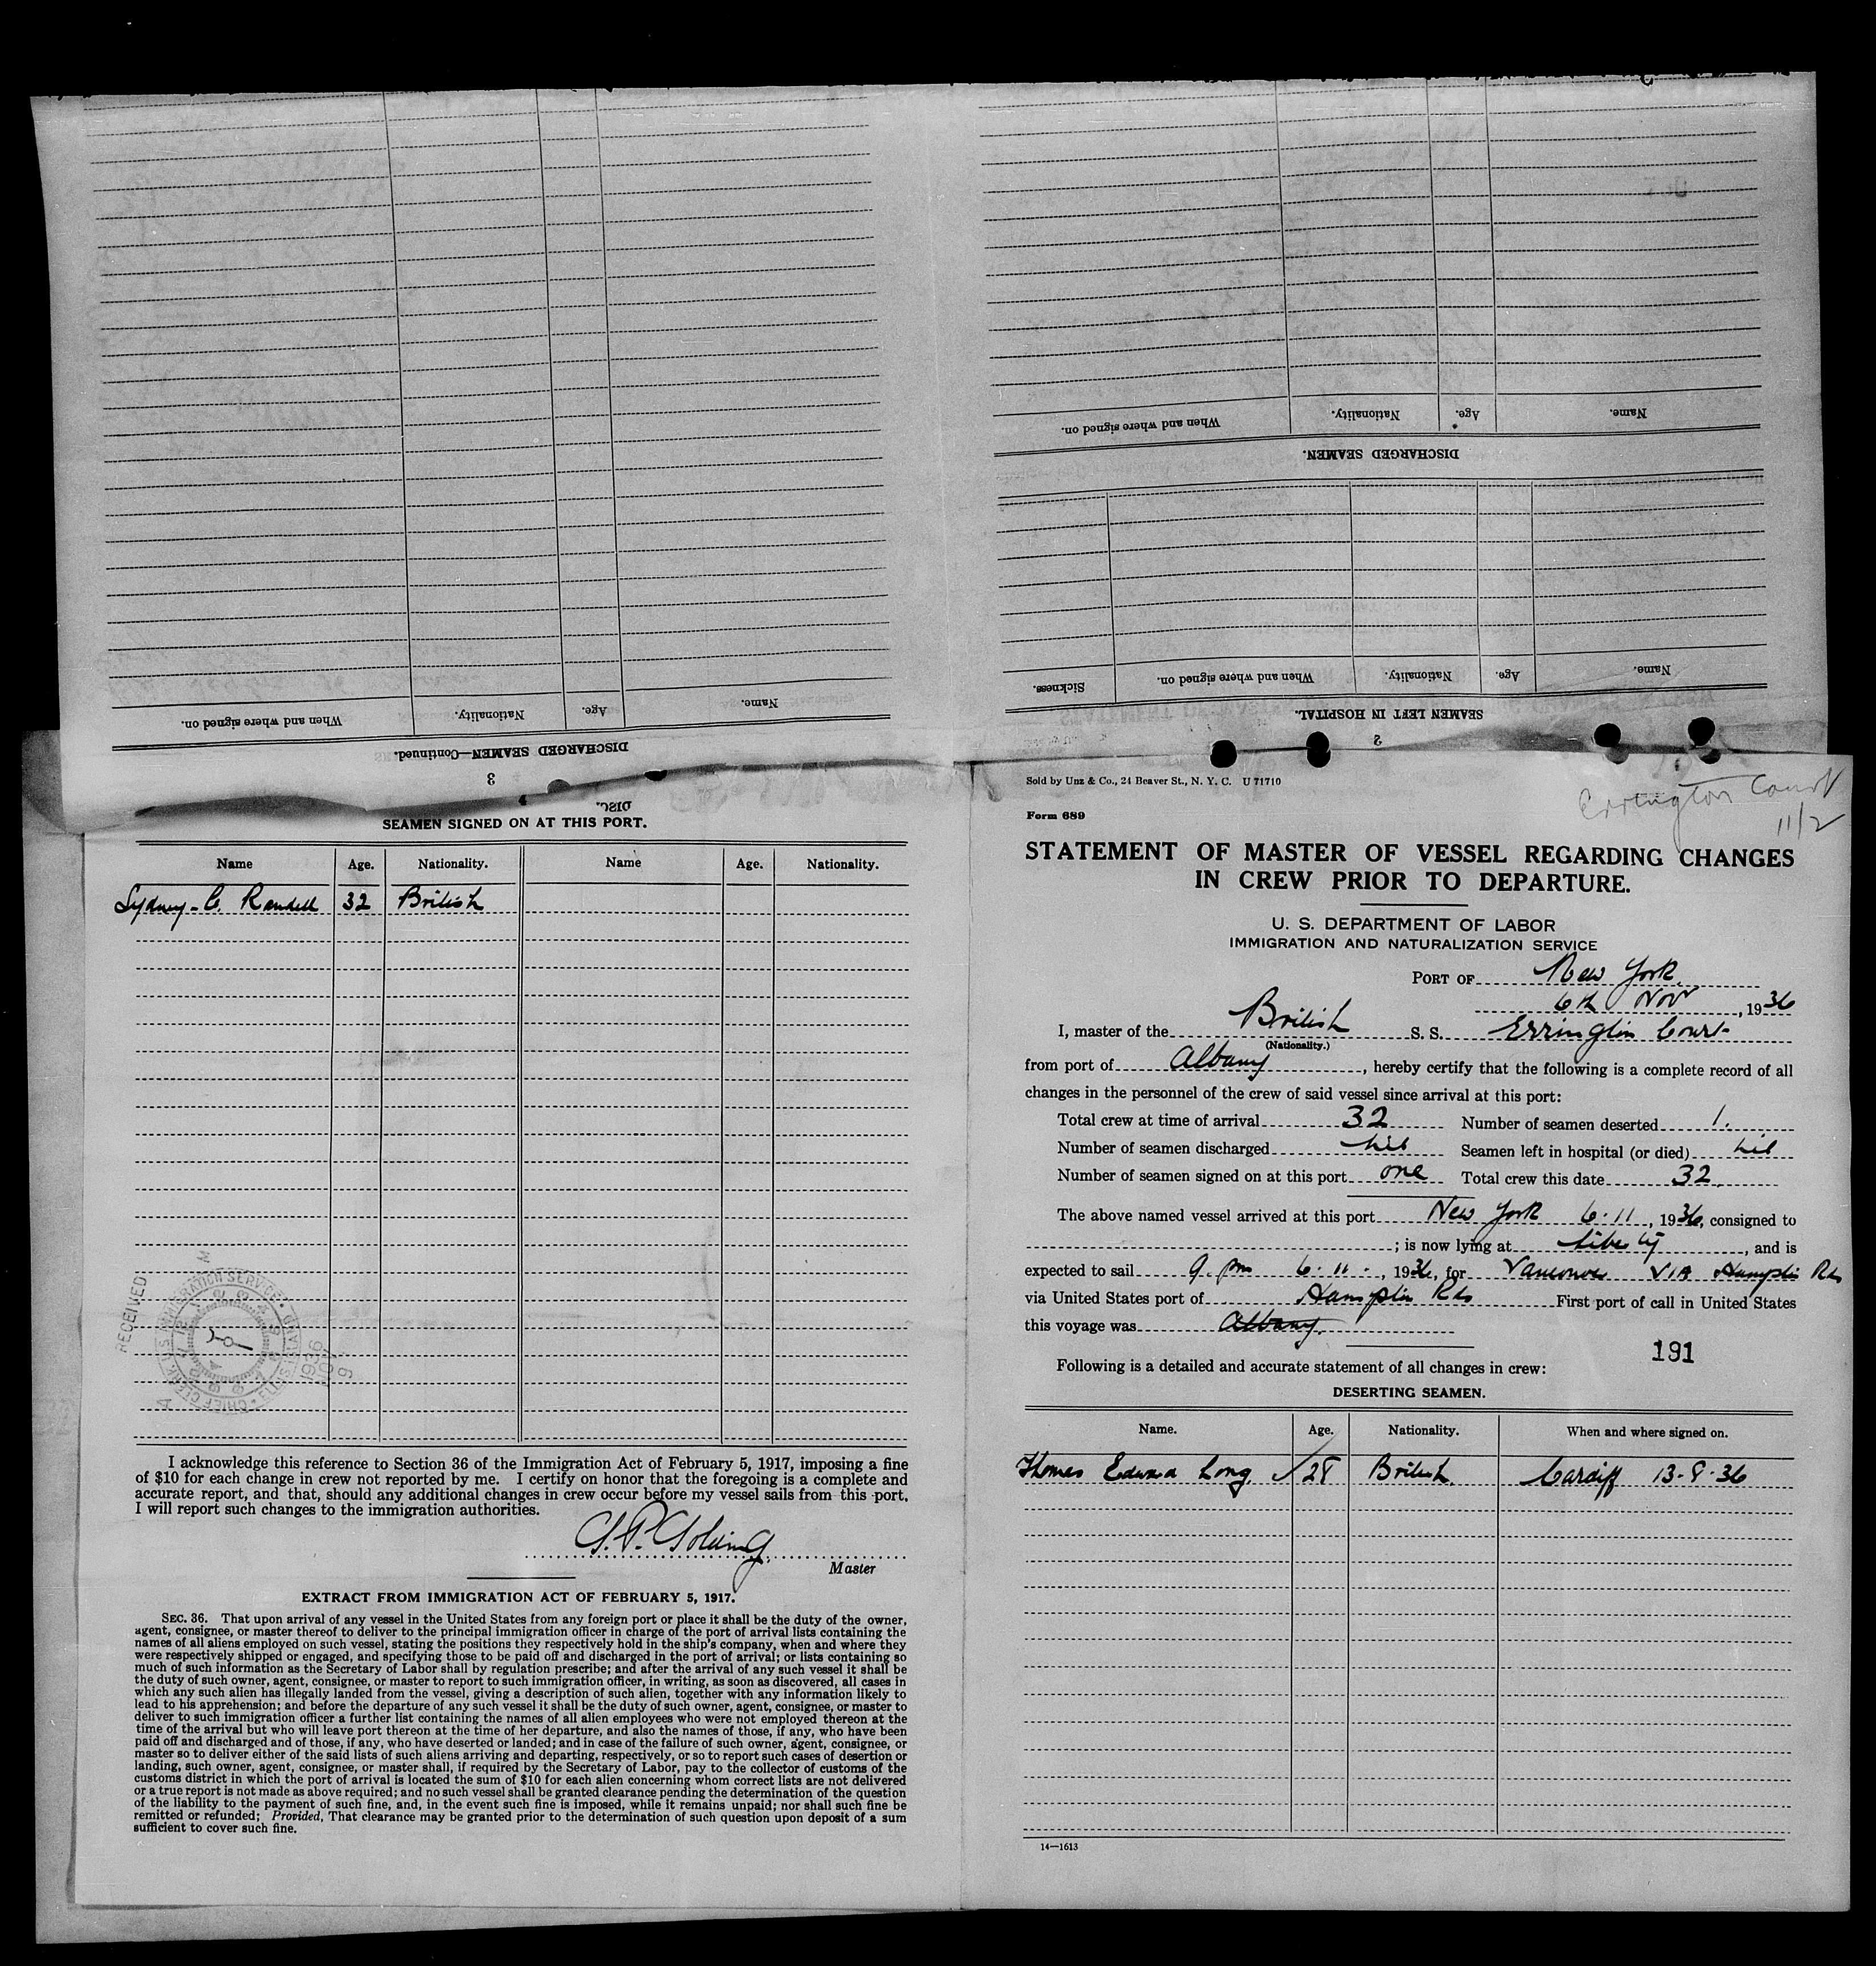 3
DISCHARGED SEAMEN—Continued.
Name. Age. Nationality. When and where signed on.
2
SEAMEN LEFT IN HOSPITAL.
Name. Age. Nationality. When and where signed on. Sickness.
DISCHARGED SEAMEN.
Name. Age. Nationality. When and where signed on.
DISC.
SEAMEN SIGNED ON AT THIS PORT.
Name Age. Nationality. Name Age. Nationality.
Sydney C. Randell 32 British
RECEIVED
I acknowledge this reference to Section 36 of the Immigration Act of February 5, 1917, imposing a fine
of $10 for each change in crew not reported by me. I certify on honor that the foregoing is a complete and
accurate report, and that, should any additional changes in crew occur before my vessel sails from this port,
I will report such changes to the immigration authorities.
Master
EXTRACT FROM IMMIGRATION ACT OF FEBRUARY 5, 1917.
SEC. 36. That upon arrival of any vessel in the United States from any foreign port or place it shall be the duty of the owner,
agent, consignee, or master thereof to deliver to the principal immigration officer in charge of the port of arrival lists containing the
names of all aliens employed on such vessel, stating the positions they respectively hold in the ship's company, when and where they
were respectively shipped or engaged, and specifying those to be paid off and discharged in the port of arrival; or lists containing so
much of such information as the Secretary of Labor shall by regulation prescribe; and after the arrival of any such vessel it shall be
the duty of such owner, agent, consignee, or master to report to such immigration officer, in writing, as soon as discovered, all cases in
which any such alien has illegally landed from the vessel, giving a description of such alien, together with any information likely to
lead to his apprehension; and before the departure of any such vessel it shall be the duty of such owner, agent, consignee, or master to
deliver to such immigration officer a further list containing the names of all alien employees who were not employed thereon at the
time of the arrival but who will leave port thereon at the time of her departure, and also the names of those, if any, who have been
paid off and discharged and of those, if any, who have deserted or landed; and in case of the failure of such owner, agent, consignee, or
master so to deliver either of the said lists of such aliens arriving and departing, respectively, or so to report such cases of desertion or
landing, such owner, agent, consignee, or master shall, if required by the Secretary of Labor, pay to the collector of customs of the
customs district in which the port of arrival is located the sum of $10 for each alien concerning whom correct lists are not delivered
or a true report is not made as above required; and no such vessel shall be granted clearance pending the determination of the question
of the liability to the payment of such fine, and, in the event such fine is imposed, while it remains unpaid; nor shall such fine be
remitted or refunded; Provided, That clearance may be granted prior to the determination of such question upon deposit of a sum
sufficient to cover such fine.
Sold by Unz & Co., 24 Beaver St., N. Y. C. U 71710
Errington Court
11/2
Form 689
STATEMENT OF MASTER OF VESSEL REGARDING CHANGES
IN CREW PRIOR TO DEPARTURE.
U. S. DEPARTMENT OF LABOR
IMMIGRATION AND NATURALIZATION SERVICE
PORT OF New York
6th Nov, 1936
I, master of the British S. S. Errington Court
(Nationality.)
from port of Albany, hereby certify that the following is a complete record of all
changes in the personnel of the crew of said vessel since arrival at this port:
Total crew at time of arrival 32 Number of seamen deserted 1.
Number of seamen discharged nil Seamen left in hospital (or died) nil
Number of seamen signed on at this port one Total crew this date 32.
The above named vessel arrived at this port New York 6.11, 1936, consigned to
; is now lying at Liberty, and is
expected to sail 9. pm 6.11., 1936, for Vancouver VIA Hampton Rds
via United States port of Hampton Rds First port of call in United States
this voyage was Albany.
191
Following is a detailed and accurate statement of all changes in crew:
DESERTING SEAMEN.
Name. Age. Nationality. When and where signed on.
Thomas Edward Long. 28 British. Cardiff 13-8-36
14—1613